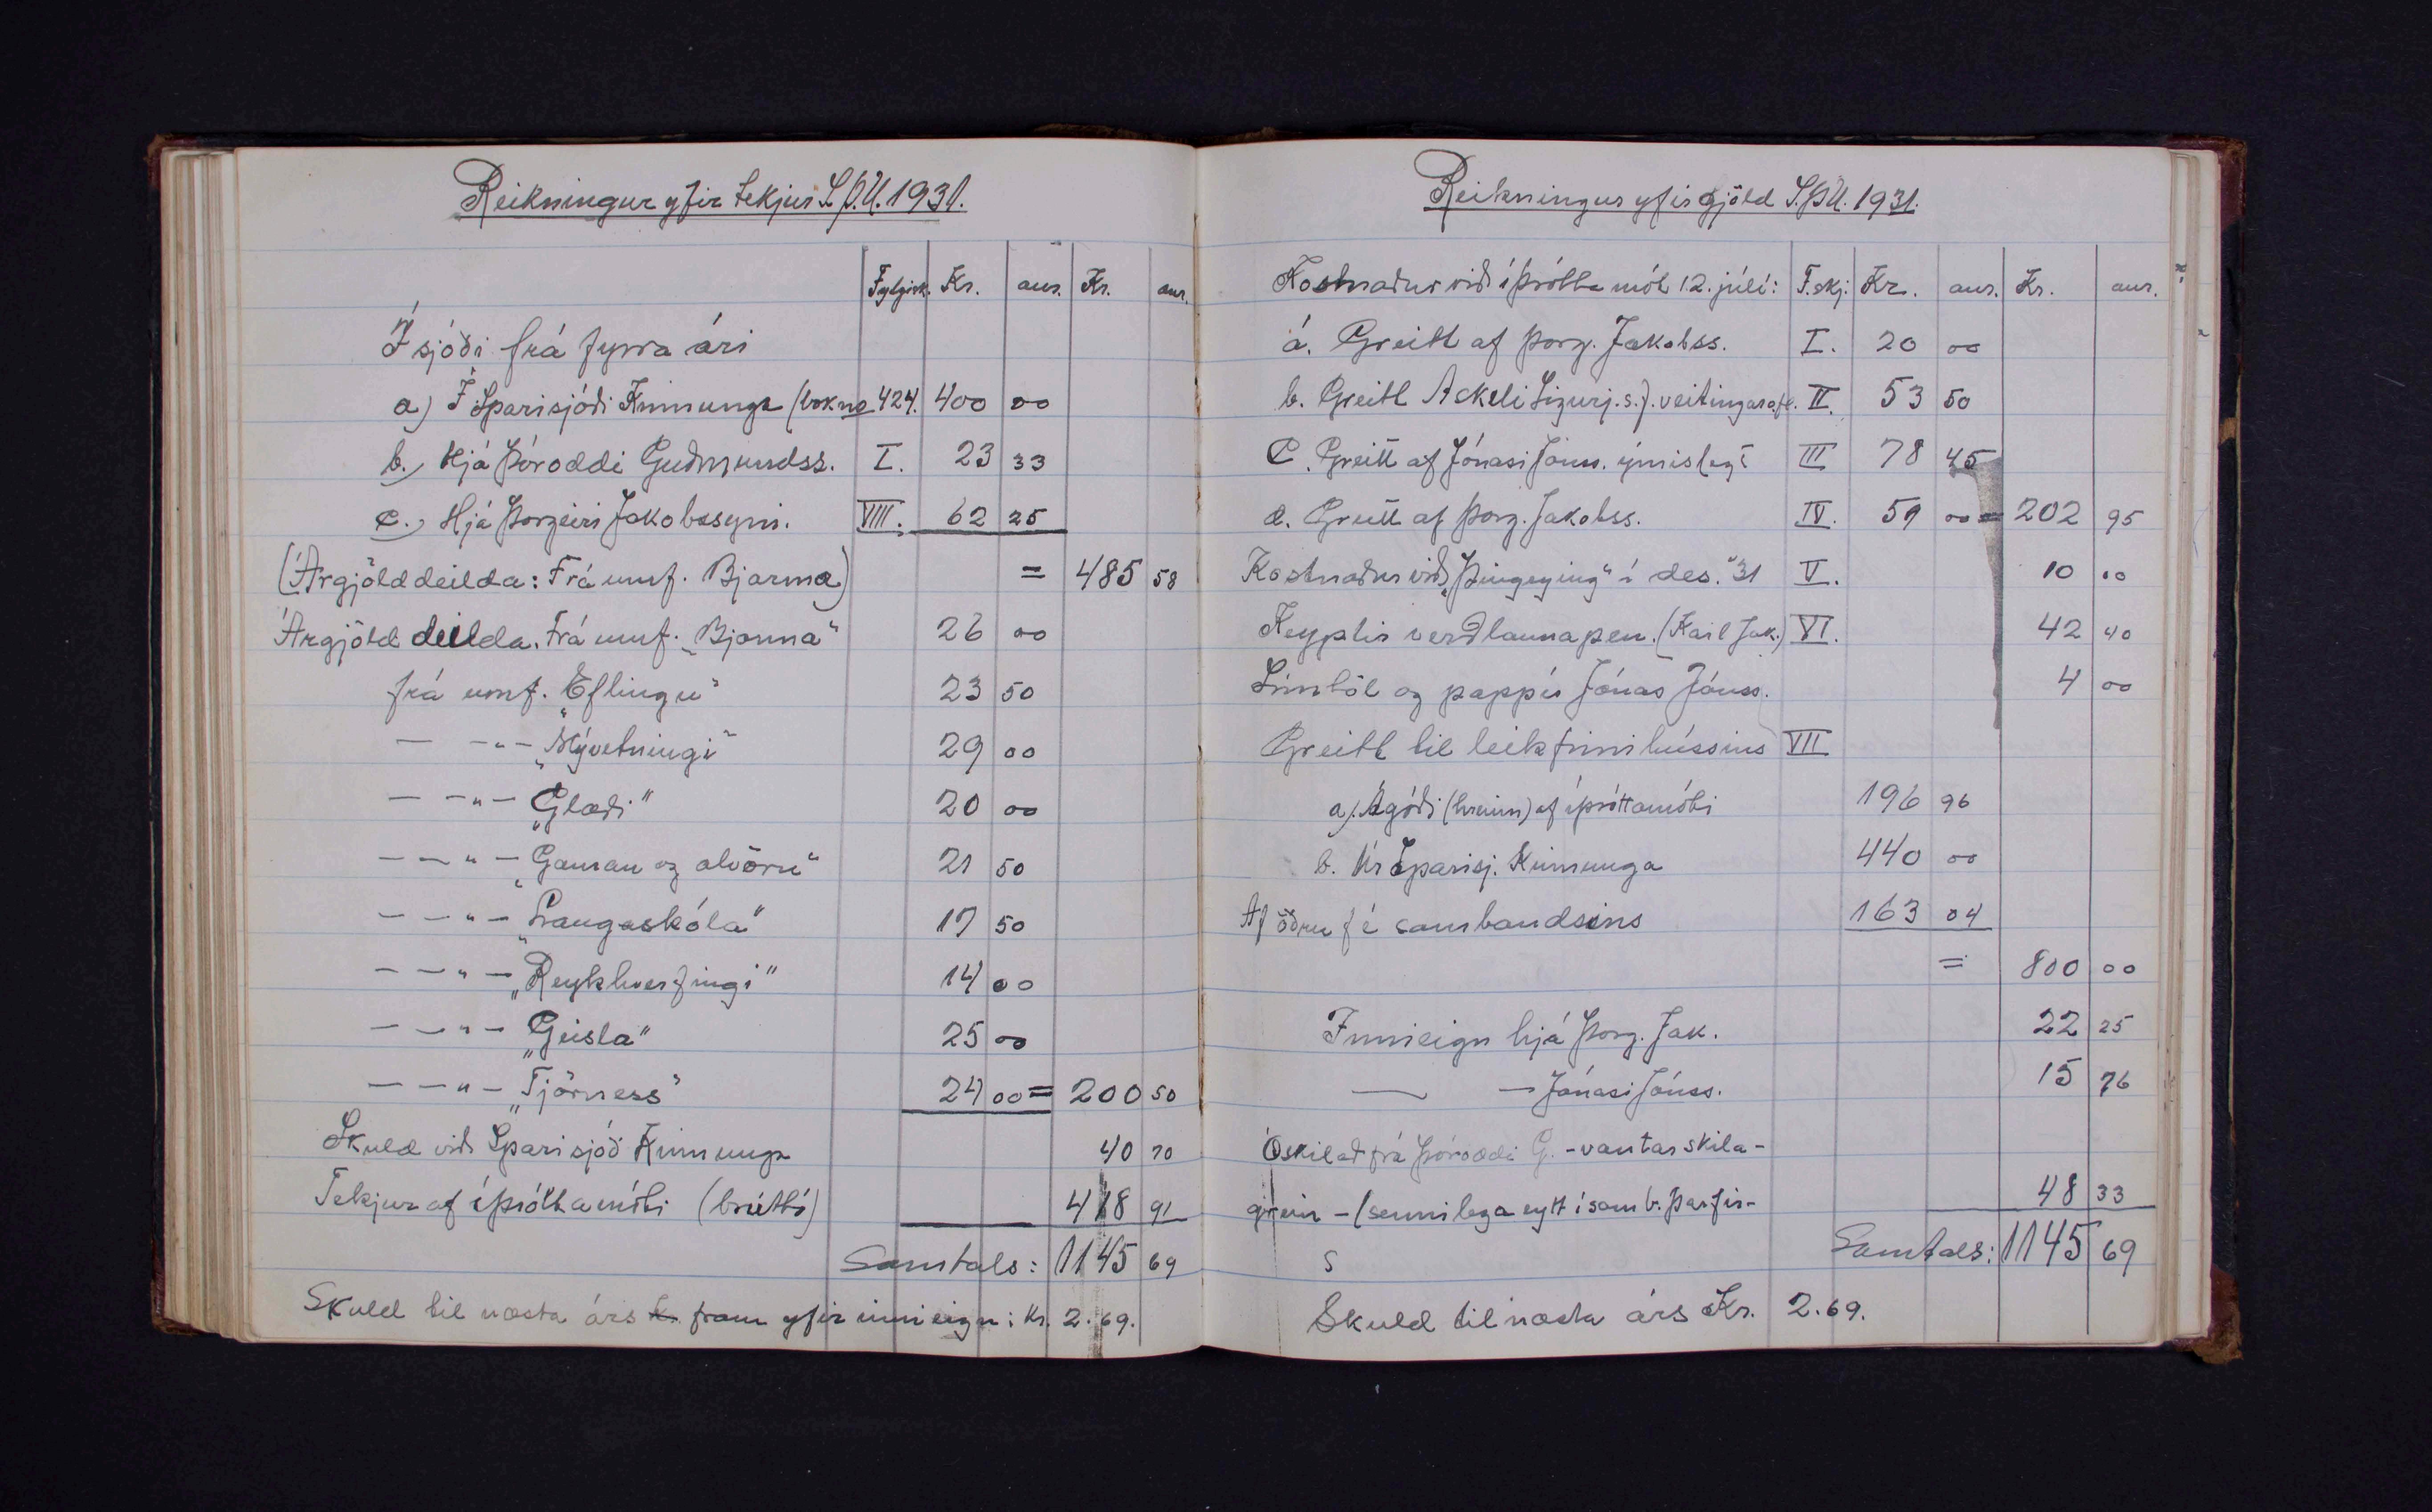 Reikningur yfir tekjur S.Þ.U. 1931.
Fylgisk. Kr. aur. Kr. aur.
Í sjóði frá fyrra ári
a) Í Sparisjóði Kinnunga (bók no 424. 400 00
b.) Hjá Þóroddi Guðmundss. I. 23 33
c.) Hjá Þorgeiri Jakobssyni. VIII. 62 25
(Árgjöld deilda: Frá umf. Bjarma) = 485 58
Árgjöld deilda. Frá umf. „Bjarma" 26 00
frá umf. „Eflingu" 23 50
— -"- „Mývetningi" 29 00
— -"- „Glæði" 20 00
— — " — „Gaman og alvöru" 21 50
— — " — „Laugaskóla" 17 50
— — " — „Reykhverfingi" 14 00
— — " — „Geisla" 25 00
— — " — „Tjörness" 24 00 = 200 50
Skuld við Sparisjóð Kinnunga 40 70
Tekjur af íþróttamóti (brúttó) 418 91
Samtals: 1145 69
Skuld til næsta árs k. fram yfir inneign: Kr. 2.69.
Reikningur yfir gjöld S.Þ.U. 1931.
Kostnaður við íþróttamót 12. júlí: F.skj. Kr. aur. Kr. aur.
a. Greitt af Þorg. Jakobss. I. 20 00
b. Greitt Askeli Sigurj.s. f. veitingar ofl. II. 53 50
c. Greitt af Jónasi Jónss. ýmislegt III 78 45
d. Greitt af Þorg. Jakobss. IV. 51 00 = 202 95
Kostnaður við „Þingeying" í des. '31 V. 10 00
Keyptir verðlaunapen. (Karl Jak.) VI. 42 40
Símtöl og pappír Jónas Jónss. 4 00
Greitt til leikfimihússins VII
a). Ágóði (hreinn) af íþróttamóti 196 96
b. Úr Sparisj. Kinnunga 440 00
Af öðru fé sambandsins 163 04
= 800 00
Innieign hjá Þorg. Jak. 22 25
— — Jónasi Jónss. 15 76
Óskilað frá Þóroddi G. - vantar skila-
grein - (sennilega eytt í samb. þarfir- 48 33
s Samtals: 1145 69
Skuld til næsta árs Kr. 2.69.